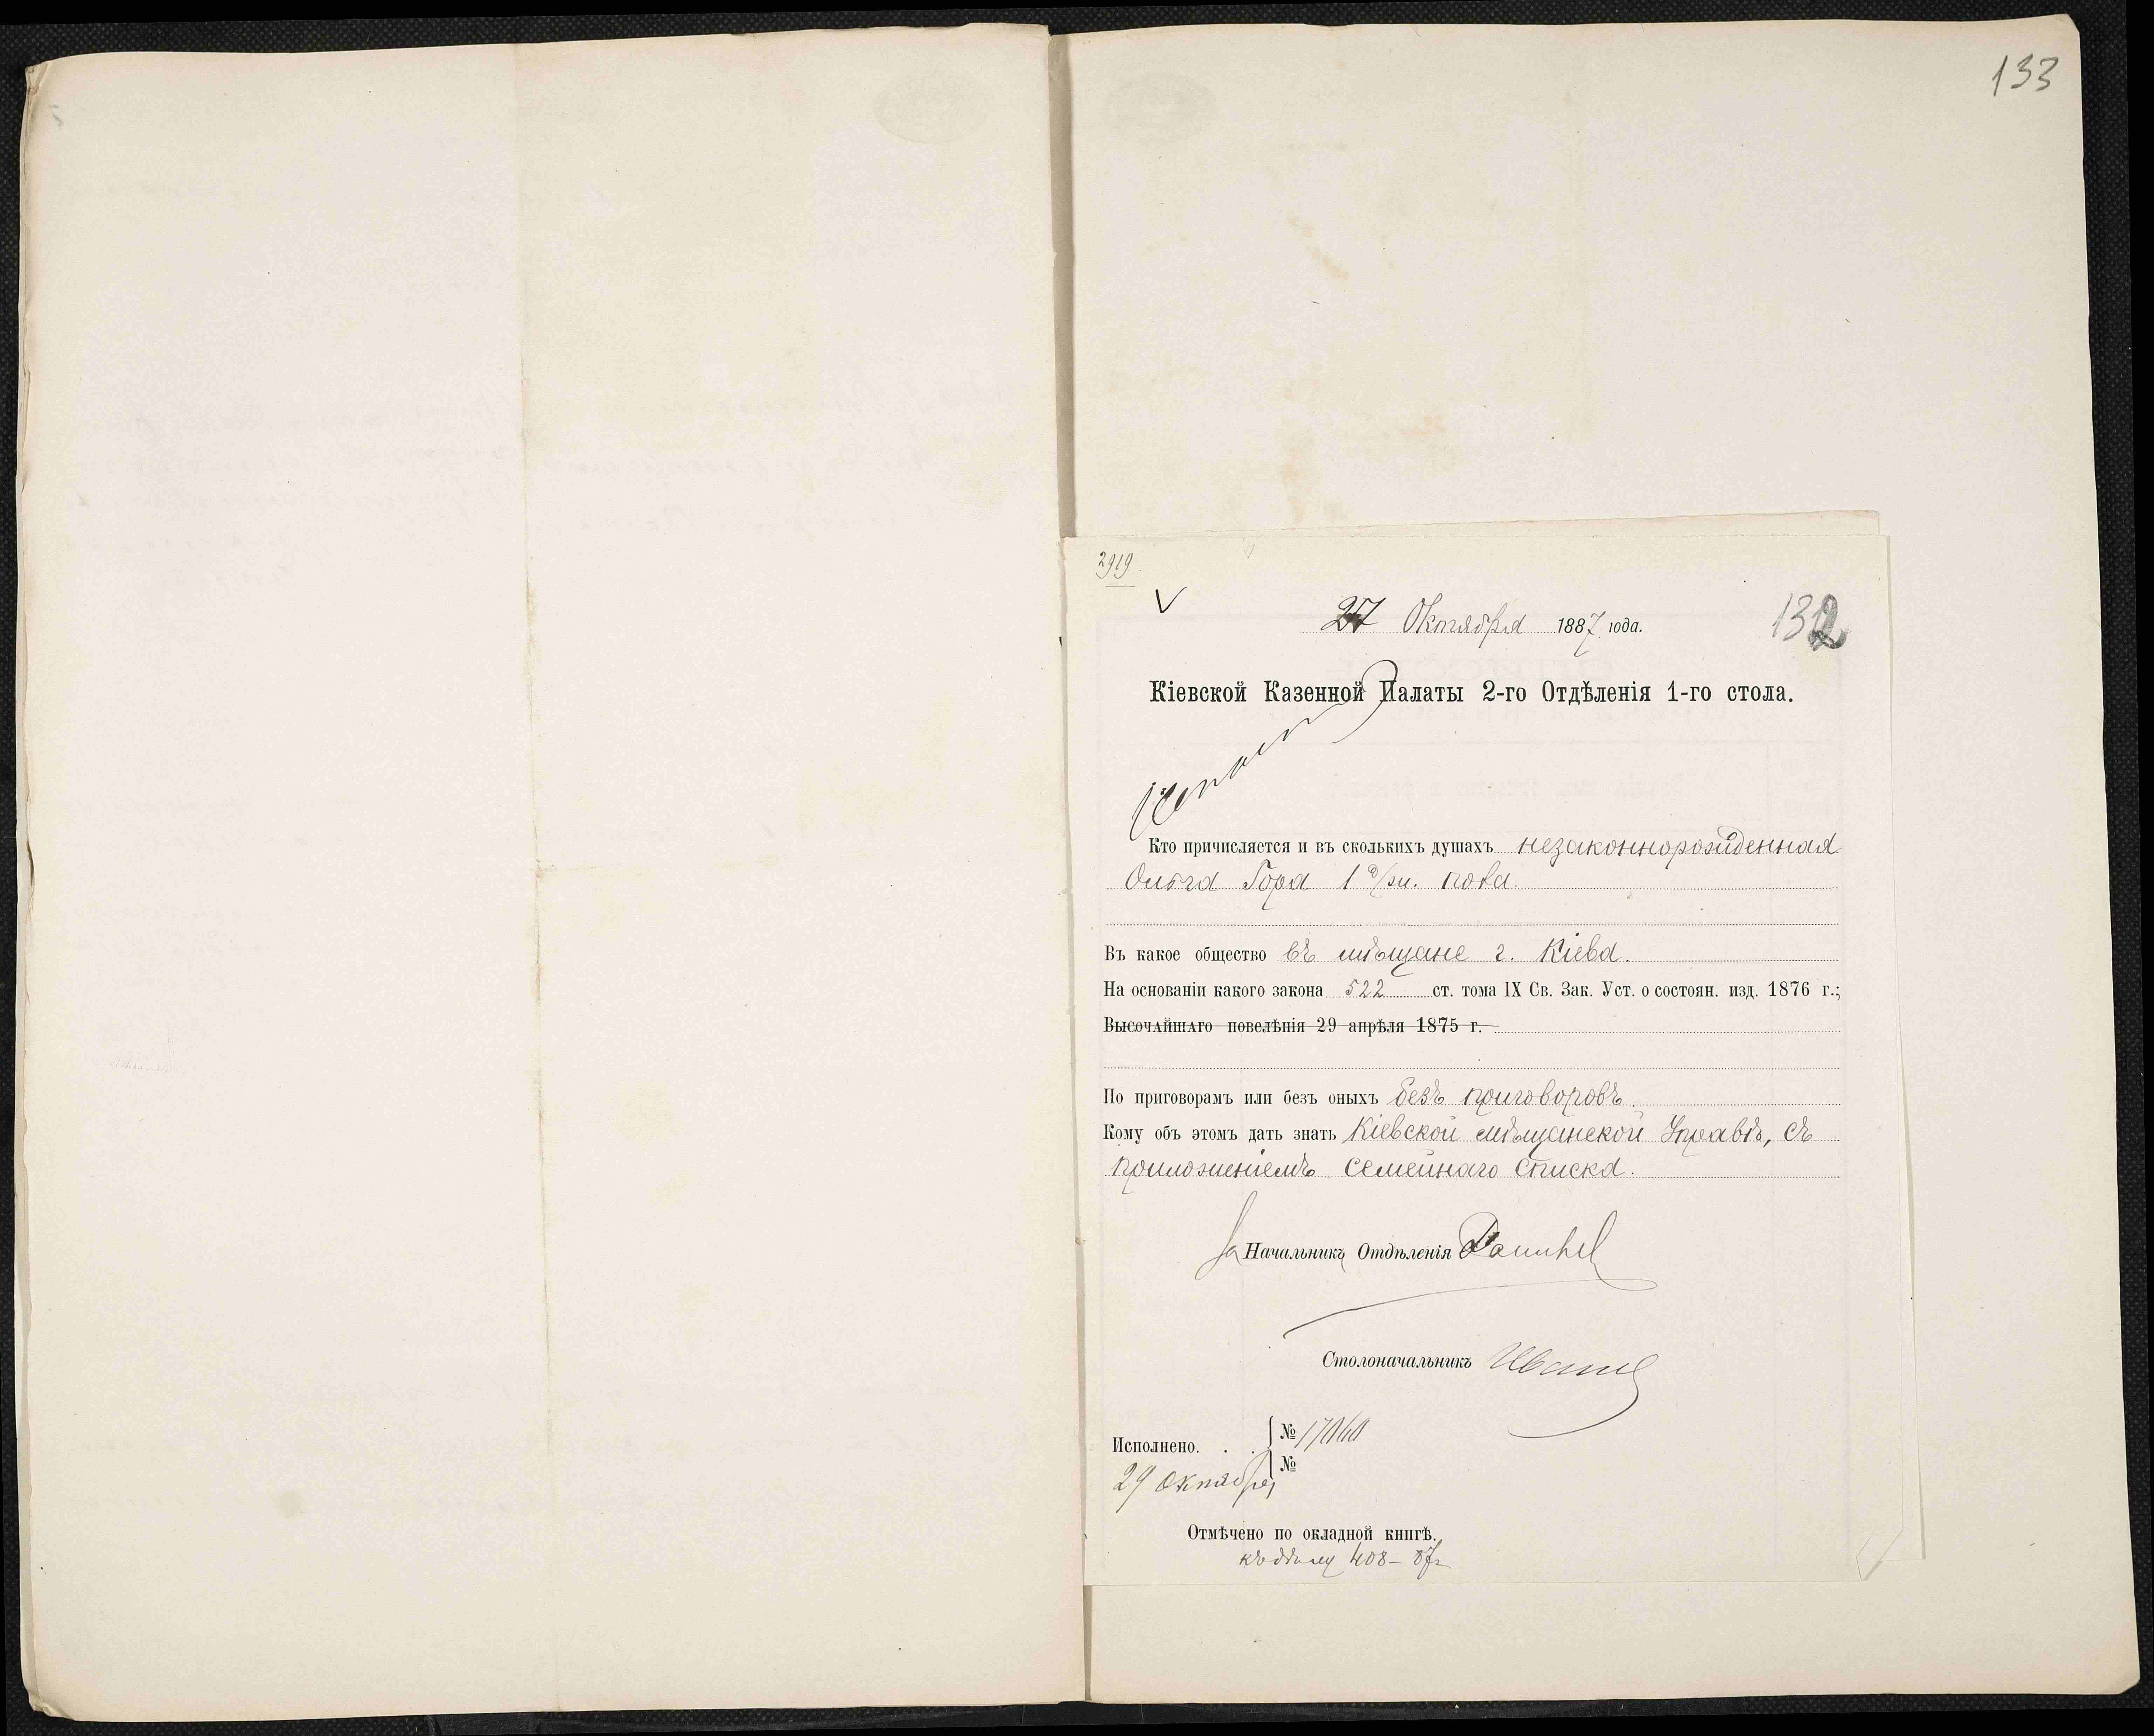 133
2919
27 Октября 1887 года.
132
Кіевской Казенной Палаты 2-го Отдѣленія 1-го стола.
Кто причисляется и въ сколькихъ душахъ незаконнорожденная
Ольга Гора 1 д/ж. пола.
Въ какое общество въ мѣщане г. Кіева.
На основаніи какого закона 522 ст. тома IX Св. Зак. Уст. о состоян. изд. 1876 г.;
Высочайшаго повелѣнія 29 апрѣля 1875 г.
По приговорамъ или безъ оныхъ безъ приговоровъ.
Кому объ этомъ дать знать Кіевской мѣщанской Управѣ, съ
приложеніемъ семейнаго списка.
За Начальникъ Отдѣленія
Столоначальникъ
Исполнено. . . № 17060
№
29 Октября
Отмѣчено по окладной книгѣ.
къ дѣлу 408-87г